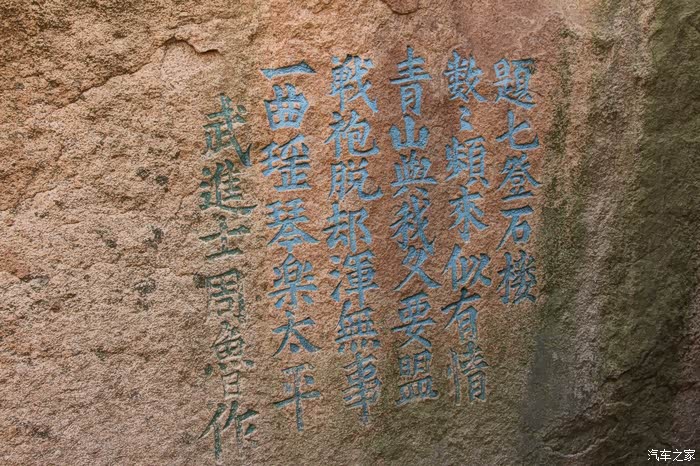 題七登石樓
數〻頻來似有情
青山與我久要盟
戰袍脫却渾無事
一曲瑶琴樂太平
武進士周魯作
汽车之家